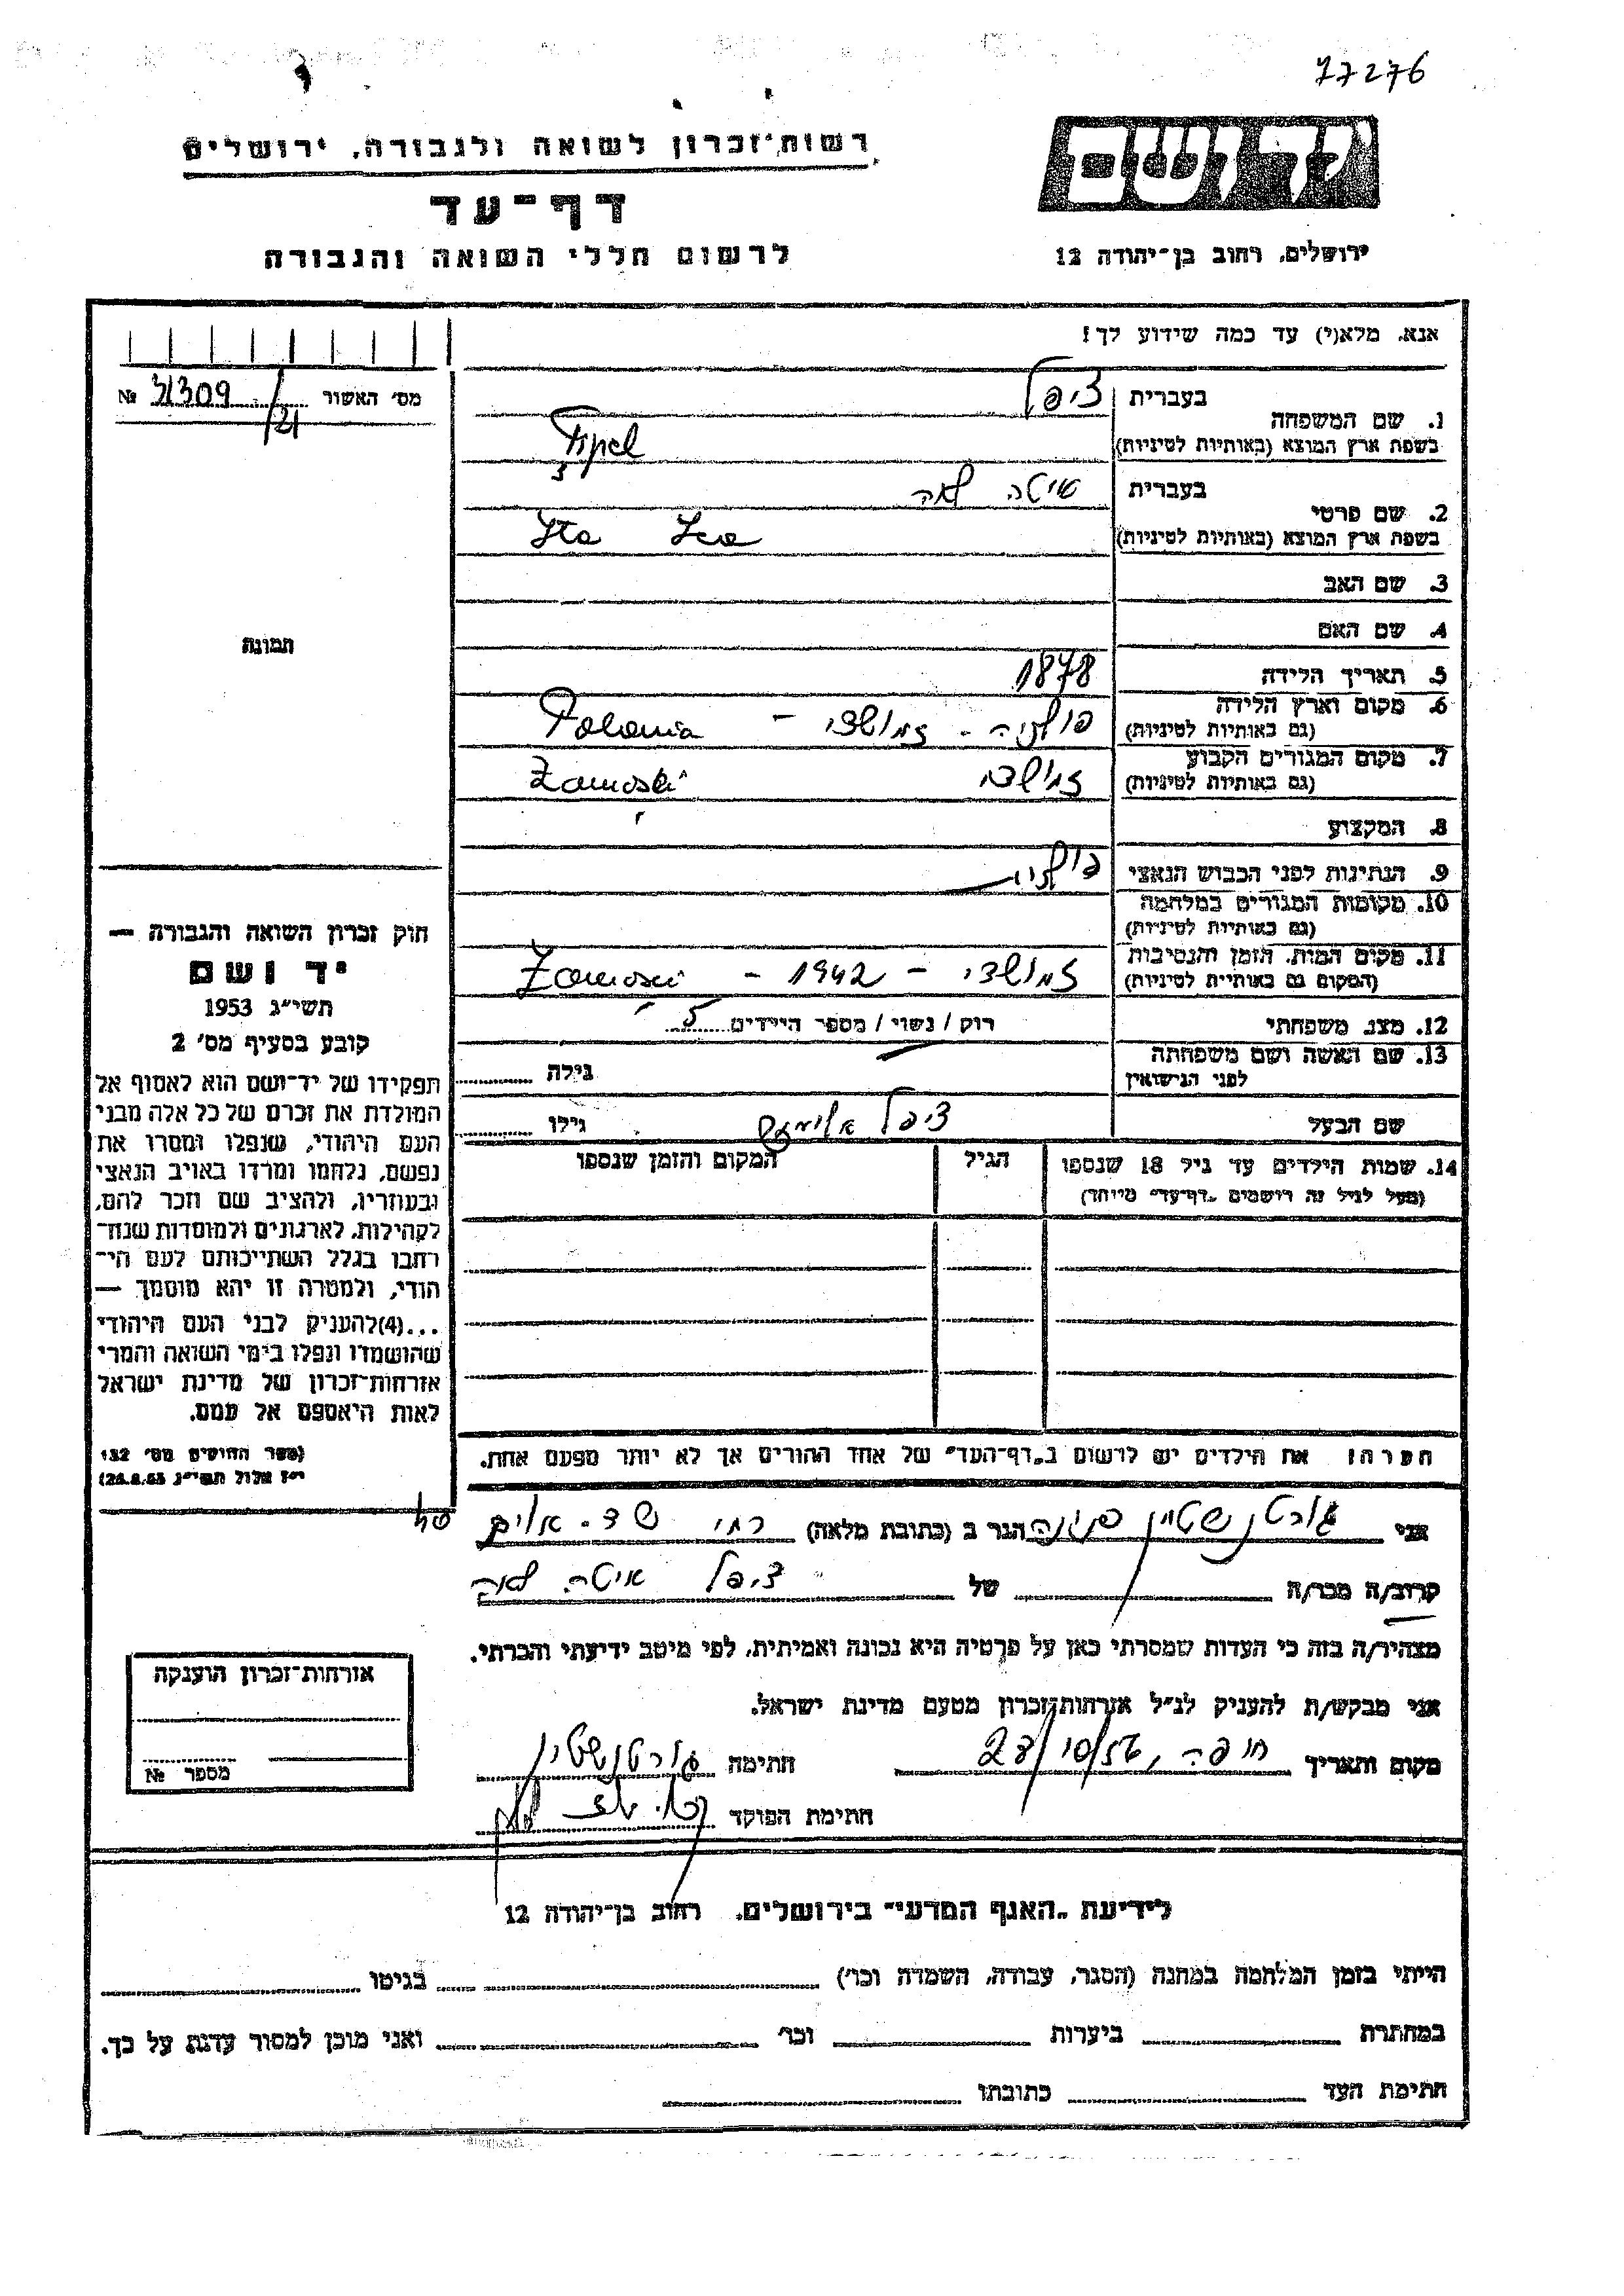 17276
רשות־זכרון לשואה ולגבורה, ירושלים
יד ושם
דף־עד
לרשום חללי השואה והגבורה
ירושלים, רחוב בן־יהודה 12
אנא, מלא(י) עד כמה שידוע לך!
מס' האשור 31309 №
/21
1. שם המשפחה בעברית ציפל
בשפת ארץ המוצא (באותיות לטיניות) Tzipel
2. שם פרטי בעברית איטה לאה
בשפת ארץ המוצא (באותיות לטיניות) Ita Lea
3. שם האב
4. שם האם
תמונה
5. תאריך הלידה 1878
6. מקום וארץ הלידה (גם באותיות לטיניות) פולניה - זמושצ' - Polonia
7. מקום המגורים הקבוע (גם באותיות לטיניות) זמושצ' Zamość
8. המקצוע
9. הנתינות לפני הכבוש הנאצי פולנית
10. מקומות המגורים במלחמה (גם באותיות לטיניות)
11. מקום המות, הזמן והנסיבות (המקום גם באותיות לטיניות) זמושצ' - 1942 - Zamość
12. מצב משפחתי רוק / נשוי / מספר הילדים 5
13. שם האשה ושם משפחתה לפני הנישואין גילה
שם הבעל ציפל גילו
14. שמות הילדים עד גיל 18 שנספו הגיל המקום והזמן שנספו
(מעל לגיל זה רושמים "דף־עד" מיוחד)
חוק זכרון השואה והגבורה —
יד ושם
תשי"ג 1953
קובע בסעיף מס' 2
תפקידו של יד־ושם הוא לאסוף אל
המולדת את זכרם של כל אלה מבני
העם היהודי, שנפלו ומסרו את
נפשם, נלחמו ומרדו באויב הנאצי
ובעוזריו, ולהציב שם וזכר להם,
לקהילות, לארגונים ולמוסדות שנח־
רבו בגלל השתייכותם לעם הי־
הודי, ולמטרה זו יהא מוסמך —
...(4)להעניק לבני העם היהודי
שהושמדו ונפלו בימי השואה והמרי
אזרחות־זכרון של מדינת ישראל
לאות היאספם אל עמם.
(ספר החוקים מס' 132
י"ז אלול תשי"ג 28.8.53)
הערה: את הילדים יש לרשום ב"דף־העד" של אחד ההורים אך לא יותר מפעם אחת.
אני גורטנשטיין פנינה הגר ב (כתובת מלאה)
קרוב/ה מכר/ה של ציפל איטה לאה
מצהיר/ה בזה כי העדות שמסרתי כאן על פרטיה היא נכונה ואמיתית, לפי מיטב ידיעתי והכרתי.
אני מבקש/ת להעניק לנ"ל אזרחות־זכרון מטעם מדינת ישראל.
מקום ותאריך חיפה, 23/10/56 חתימה גורטנשטיין
חתימת הפוקד
אזרחות־זכרון הוענקה
מספר №
לידיעת "האגף המדעי" בירושלים, רחוב בן־יהודה 12
הייתי בזמן המלחמה במחנה (הסגר, עבודה, השמדה וכו') בגיטו
במחתרת ביערות וכו' ואני מוכן למסור עדות על כך.
חתימת העד כתובתו